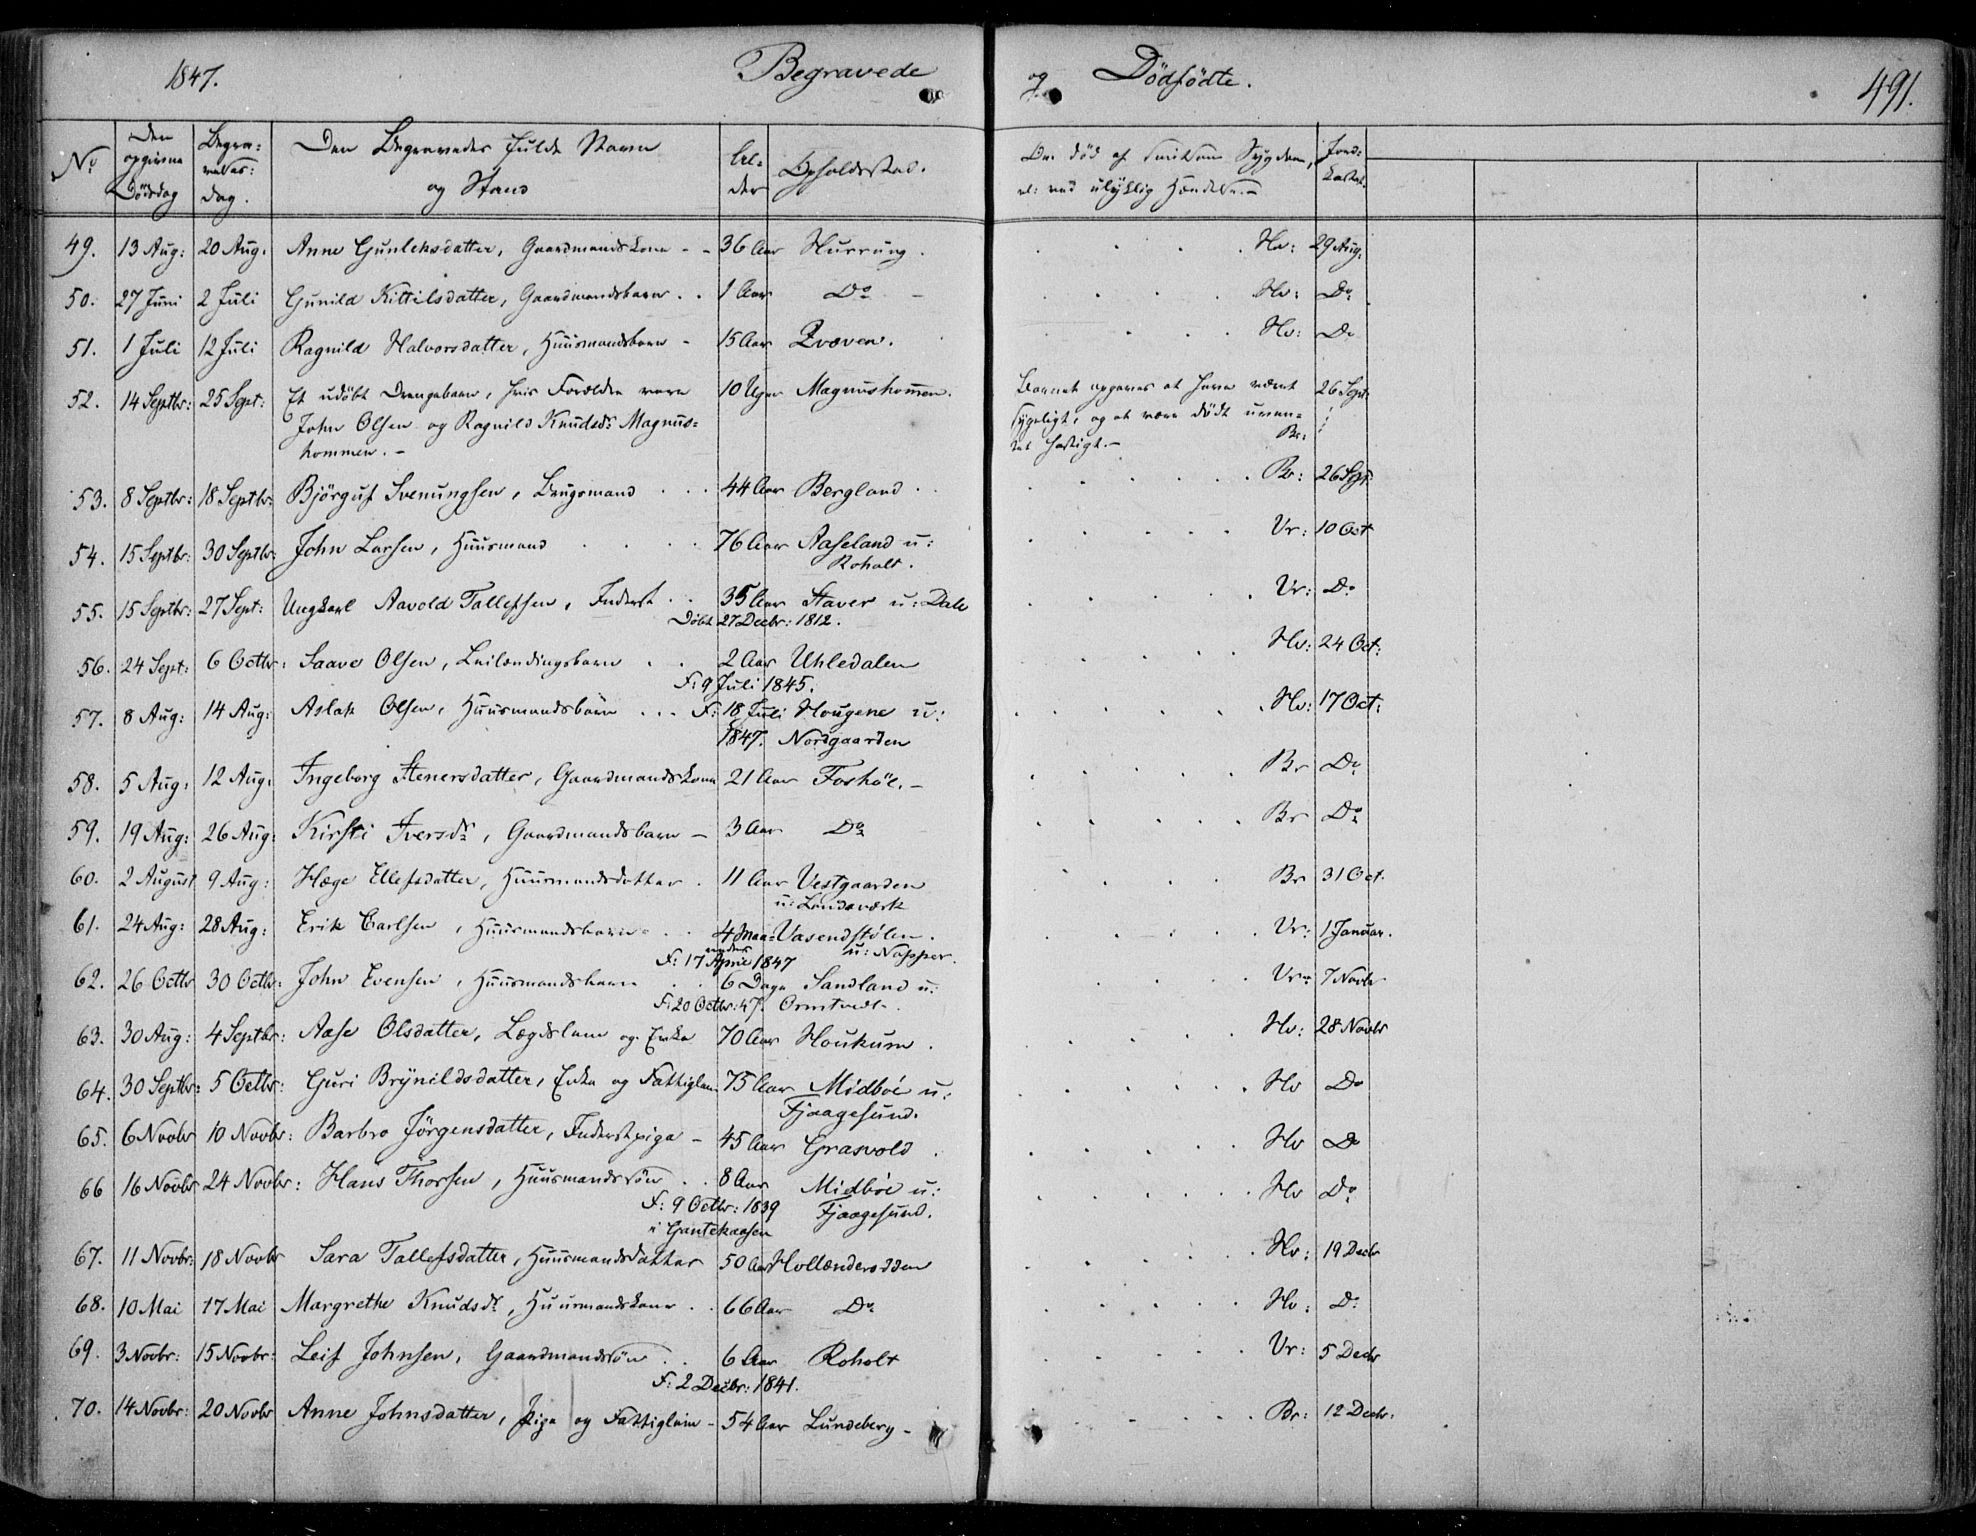 1847. Begravede og Dödfödte. 491.
No Den opgivne Dödsdag Begravelses-dag. Den Begravedes fulde Navn og Stand Alder Opholdssted. Om död af smitsom Sygdom, el: ved ulykkelig Hændelse. Jord-kastet.
49. 13 Aug: 20 Aug. Anne Gunleksdatter, Gaardmandskone - - 36 Aar Hurrung. Hv: 29 Aug.
50. 27 Juni 2 Juli Gunild Kittilsdatter, Gaardmandsbarn . . 1 Aar Do - Hv: Do
51. 1 Juli 12 Juli Ragnild Halvorsdatter, Huusmandsbarn - 15 Aar Qvæven. Hv: Do
52. 14 Septbr: 25 Sept: Et udöbt Drengebarn, hvis Forældre vare 10 Uger Magnushommen. Barnet opgives at have været 26 Sept:
John Olsen og Ragnild Knudsdr Magnus= sygeligt, og at være dödt uven=
hommen. - tet hastigt. - Br:
53. 8 Septbr: 18 Septbr: Björguf Svenungsen, Brugsmand . . . 44 Aar Bergland . . Br: 26 Sept:
54. 15 Septbr: 30 Septbr: John Larsen, Huusmand . . . . 76 Aar Aaseland u: Vr: 10 Oct
Roholt.
55. 15 Septbr: 27 Sept: Ungkarl Aavold Tallefsen, Inderst . . 35 Aar Staver u: Dale Vr: Do
Döbt 27 Decbr: 1812.
56. 24 Sept: 6 Octbr: Saave Olsen, Leilændingsbarn . . 2 Aar Uhledalen Hv: 24 Oct:
F: 9 Juli 1845.
57. 8 Aug: 14 Aug: Aslak Olsen, Huusmandsbarn . . . F: 18 Juli Hougene u: Hv: 17 Oct:
1847. Nordgaarden
58. 5 Aug: 12 Aug: Ingeborg Stenersdatter, Gaardmandskone 21 Aar Foshöl. - Br Do
59. 19 Aug: 26 Aug: Kirsti Iversdr, Gaardmandsbarn - 3 Aar Do Br Do
60. 2 August 9 Aug: Hæge Ellefsdatter, Huusmandsdatter . 11 Aar Vestgaarden Br 31 Oct.
u: Landsværk
61. 24 Aug: 28 Aug: Erik Carlsen, Huusmandsbarn . . 4 Maa= Vasendstölen. Vr: 1 Januar.
neder u: Napper.
F: 17 April 1847
62. 26 Octbr 30 Octbr: John Evensen, Huusmandsbarn . . 6 Dage Sandland u: Vr: 7 Novbr
F: 20 Octbr: 47. Omtvedt.
63. 30 Aug: 4 Septbr: Aase Olsdatter, Lægdslem og Enke 70 Aar Houkum . Hv: 28 Novbr
64. 30 Septbr: 5 Octbr: Guri Brynildsdatter, Enke og Fattiglem 75 Aar Midböe u: Hv Do
Fjaagesund.
65. 6 Novbr 10 Novbr: Barbro Jörgensdatter, Inderstpige - 45 Aar Grasvold . Hv Do
66 16 Novbr 24 Novbr: Hans Thorsen, Huusmandssön . . 8 Aar Midböe u: Hv Do
F: 9 Octbr: 1839 Fjaagesund.
i Gantekaasen
67. 11 Novbr: 18 Novbr Sara Tallefsdatter, Huusmandsdatter 50 Aar Hollænderodden Hv: 19 Decbr
68. 10 Mai 17 Mai Margrethe Knudsdr, Huusmandskone . . 66 Aar Do Hv: Do
69. 3 Novbr: 15 Novbr: Leif Johnsen, Gaardmandssön . . 6 Aar Roholt Vr: 5 Decbr
F: 2 Decbr: 1841.
70. 14 Novbr: 20 Novbr Anne Johnsdatter, Pige og Fattiglem - 54 Aar Lundeberg - Br: 12 Decbr.